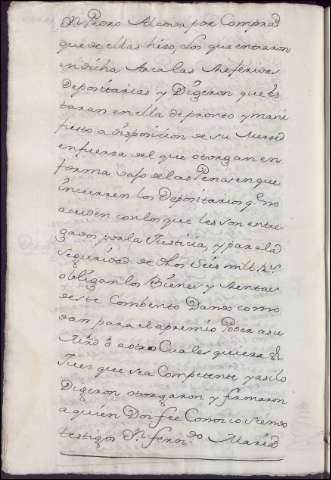 Dn Pedro Alcova por Compras
que de ellas hiso, los que entraron
en dicha Arca las Referidas
Depositarias y Digeron que es
taran en ella de pronto y mani
fiesto a disposicion de su
en fuersa del que otorgan en
forma vajo de las Penas en que
incurren los Depositarios qe no
acuden con lo que les son entre
gado, por la Justicia, y para la
seguridad de dhos seis mill Rs
obligan los Bienes y Rentas
de este Combento Dando como
dan para el apremio Poder a su
o a otro Cualesquiera
Jues que sea Competente y asilo
Digeron otorgaron y firmaron
a quien Doy fee Conosco siendo
testigos Dn Ferndo Madrid